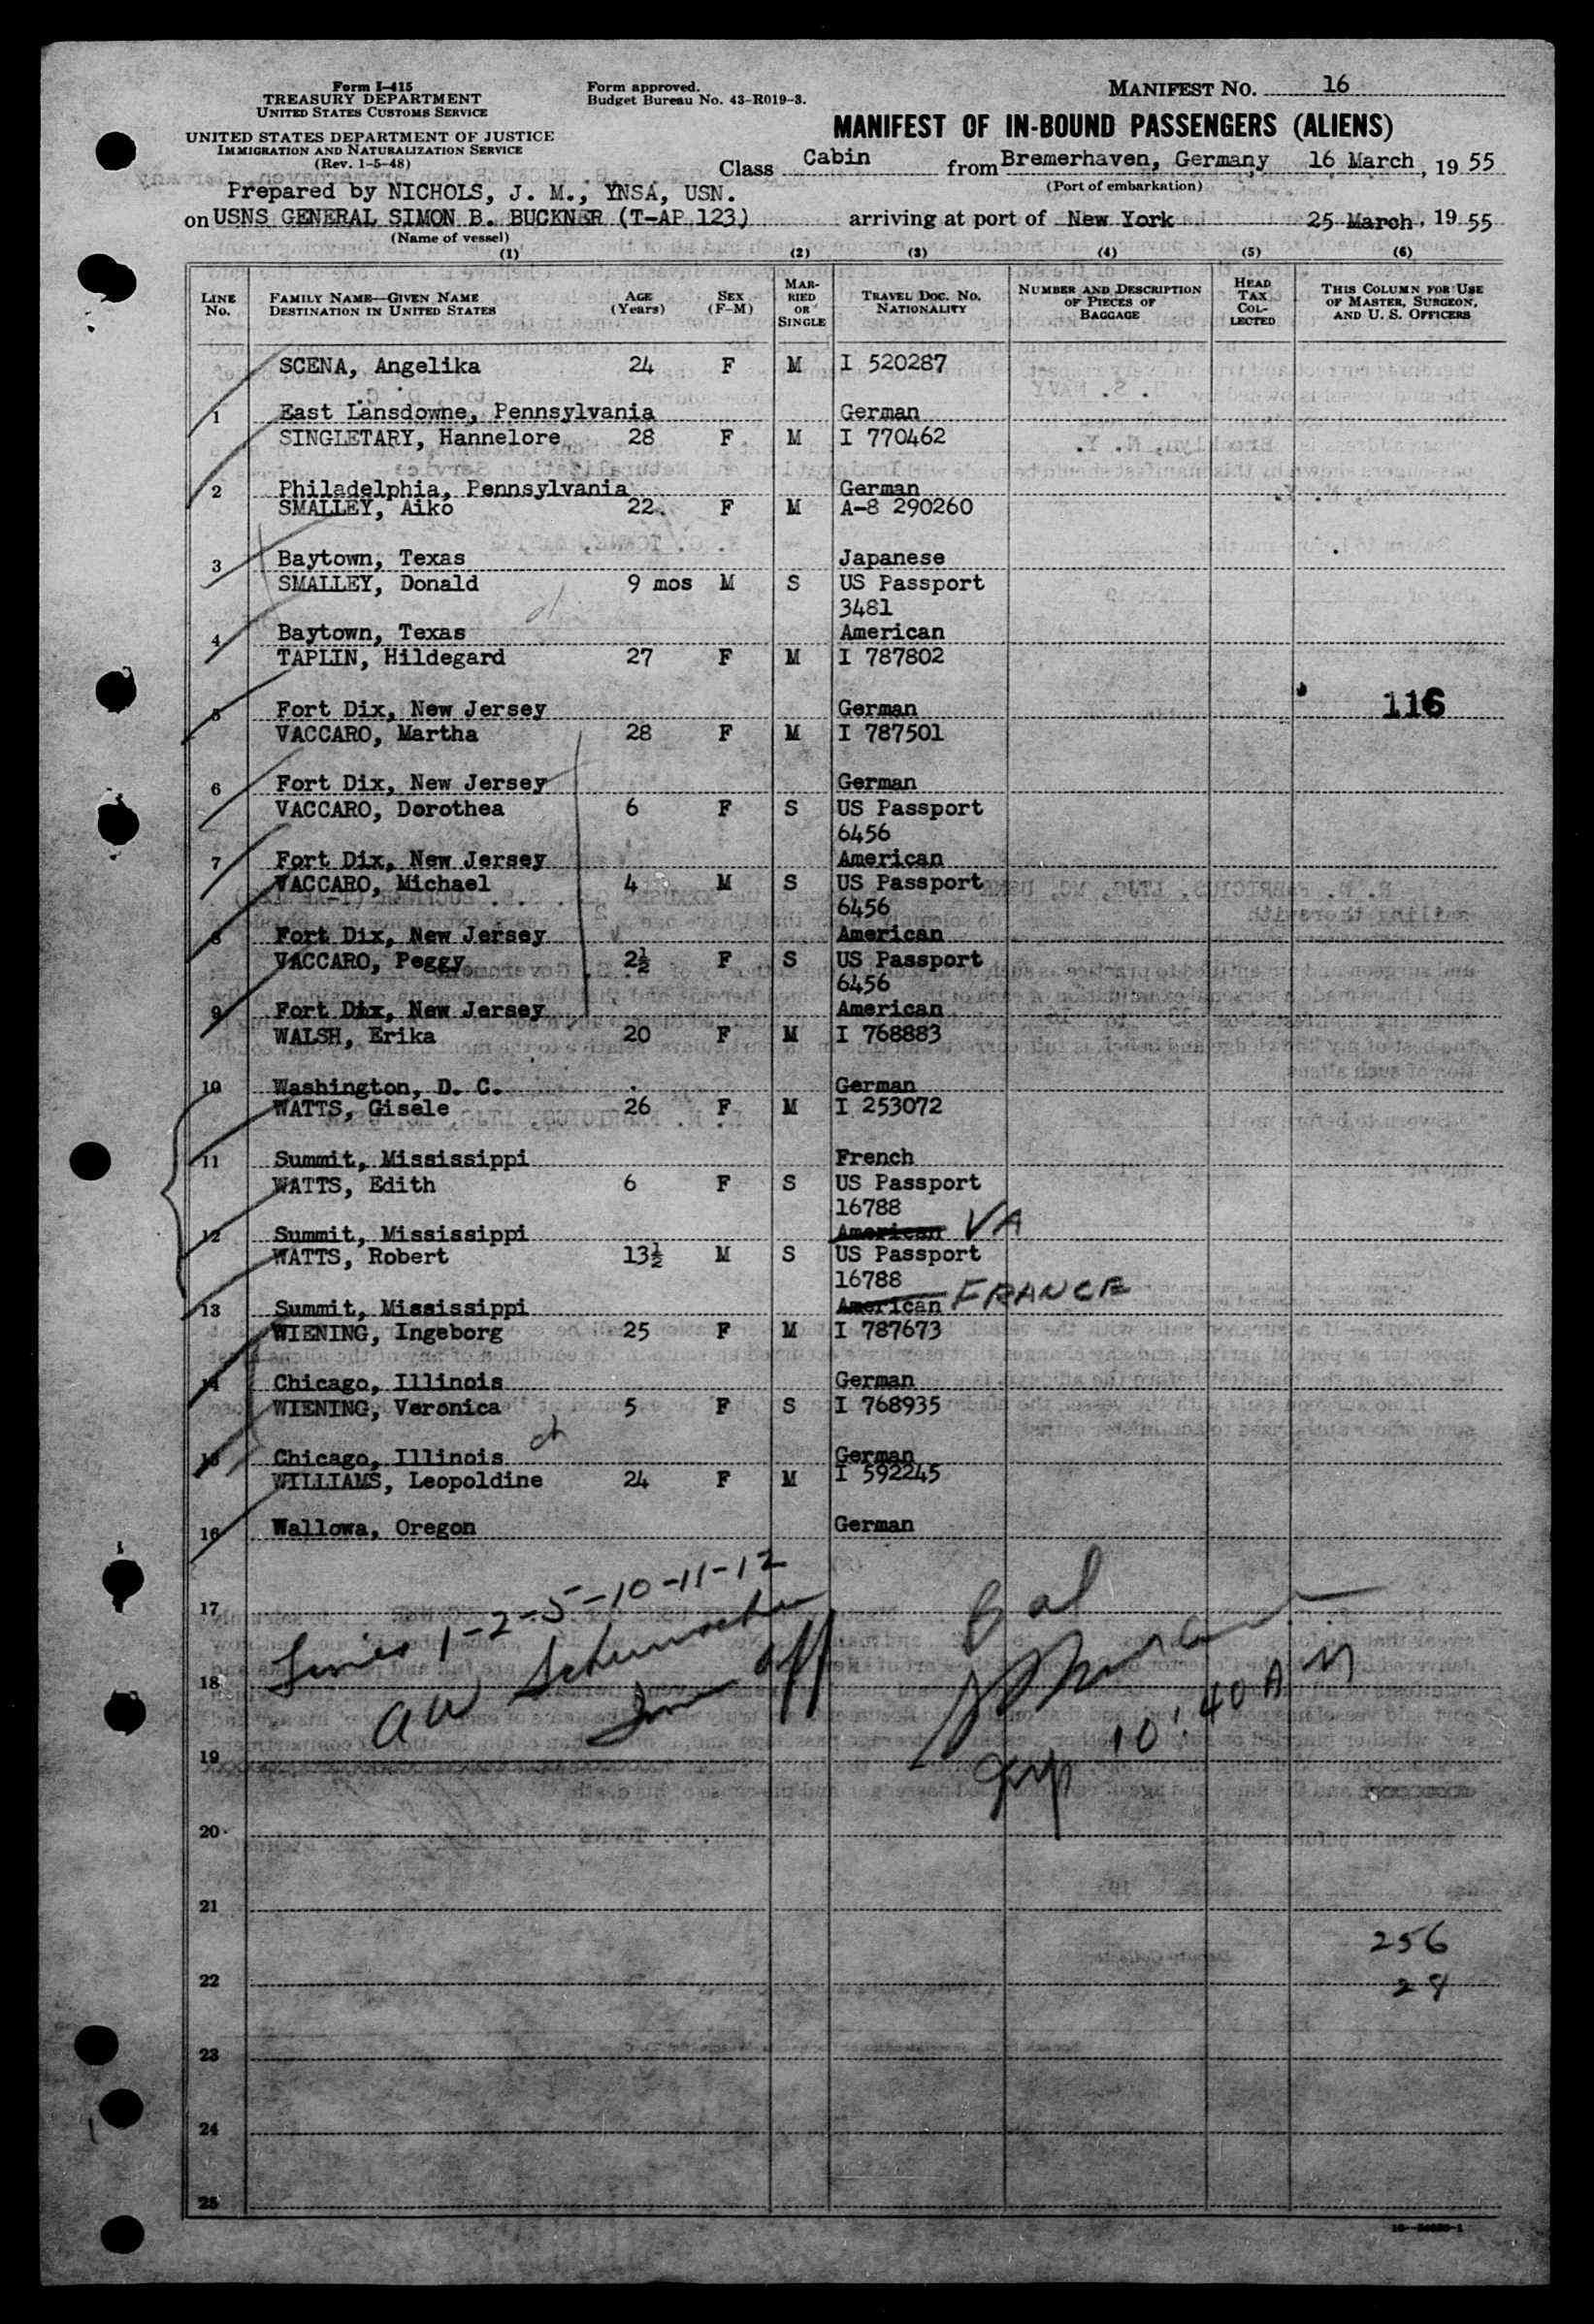 Form I-415
TREASURY DEPARTMENT
UNITED STATES CUSTOMS SERVICE
UNITED STATES DEPARTMENT OF JUSTICE
IMMIGRATION AND NATURALIZATION SERVICE
(Rev. 1-5-48)
Form approved.
Budget Bureau No. 43-R019-3.
MANIFEST NO. 16
MANIFEST OF IN-BOUND PASSENGERS (ALIENS)
Class Cabin from Bremerhaven, Germany 16 March, 19 55
(Port of embarkation)
Prepared by NICHOLS, J. M., YNSA, USN.
on USNS GENERAL SIMON B. BUCKNER (T-AP 123) arriving at port of New York 25 March, 19 55
(Name of vessel)
(1) (2) (3) (4) (5) (6)
LINE No. FAMILY NAME—GIVEN NAME DESTINATION IN UNITED STATES AGE (Years) SEX (F-M) MARRIED OR SINGLE TRAVEL DOC. NO. NATIONALITY NUMBER AND DESCRIPTION OF PIECES OF BAGGAGE HEAD TAX COLLECTED THIS COLUMN FOR USE OF MASTER, SURGEON, AND U. S. OFFICERS
SCENA, Angelika 24 F M I 520287
1 East Lansdowne, Pennsylvania German
SINGLETARY, Hannelore 28 F M I 770462
2 Philadelphia, Pennsylvania German
SMALLEY, Aiko 22 F M A-8 290260
3 Baytown, Texas Japanese
SMALLEY, Donald 9 mos M S US Passport
3481
4 Baytown, Texas American
TAPLIN, Hildegard 27 F M I 787802
5 Fort Dix, New Jersey German 116
VACCARO, Martha 28 F M I 787501
6 Fort Dix, New Jersey German
VACCARO, Dorothea 6 F S US Passport
6456
7 Fort Dix, New Jersey American
VACCARO, Michael 4 M S US Passport
6456
8 Fort Dix, New Jersey American
VACCARO, Peggy 2½ F S US Passport
6456
9 Fort Dix, New Jersey American
WALSH, Erika 20 F M I 768883
10 Washington, D. C. German
WATTS, Gisele 26 F M I 253072
11 Summit, Mississippi French
WATTS, Edith 6 F S US Passport
16788
12 Summit, Mississippi American VA
WATTS, Robert 13½ M S US Passport
16788
13 Summit, Mississippi American FRANCE
WIENING, Ingeborg 25 F M I 787673
14 Chicago, Illinois German
WIENING, Veronica 5 F S I 768935
15 Chicago, Illinois German
WILLIAMS, Leopoldine 24 F M I 592245
16 Wallowa, Oregon German
Lines 1-2-5-10-11-12
17
18
10:40 AM
19
20
21
256
22
23
24
25